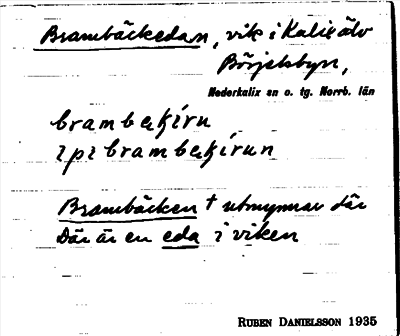 Brambäckedan, vik i Kalixälv
Börjelsbyn,
Nederkalix sn o. tg. Norrb. län
Brambäcken † utmynnar där
Där är en eda i viken
RUBEN DANIELSSON 1935